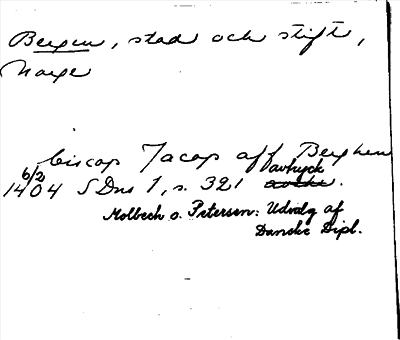 Bergen, stad och stift,
Norge
biscop Jacop aff Berghen
6/2
1404 SDns 1, s. 321 avtryck.
Molbech o. Petersen: Udvalg af
Danske Dipl.